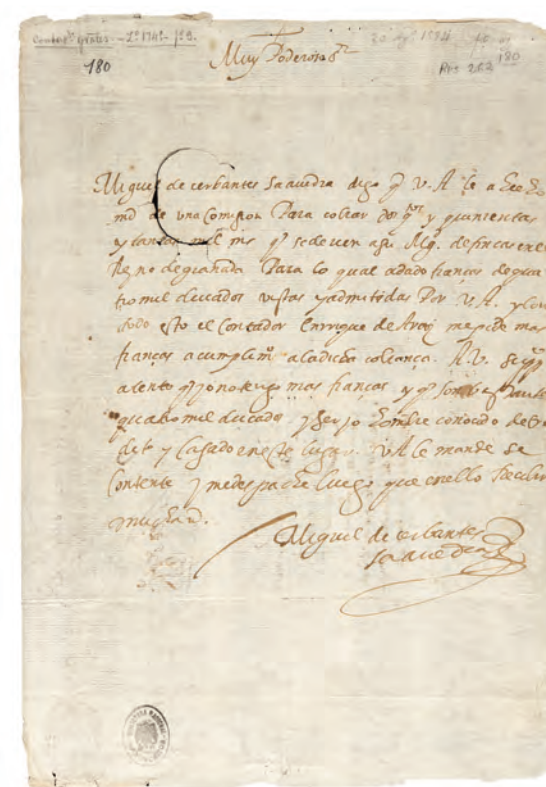 Contad.ª gener.s - L.º 1745 - f.º 9.
20 Ag.º 1594
180
Res 262
180
Muy Poderoso S.r
Miguel de cerbantes Saavedra digo q V. A. le a hecho
md de una Comision Para cobrar dos q.os y quinientas
y tantas mil mrs q se deven a su Mg. de fincas en el
Reyno de granada Para lo qual a dado fianças de qua
tro mil ducados vistas y admitidas Por V. A. y con
todo esto el Contador Enrique de Araiz me pide mas
fianças a cumplim.o a la dicha cobrança. A. V.
atento q yo no tengo mas fianças y q son bastantes
quatro mil ducados y ser yo hombre conocido de
y Casado en este lugar. V A le mande se
Contente y me despache luego que en ello
Miguel de cerbantes
saavedra